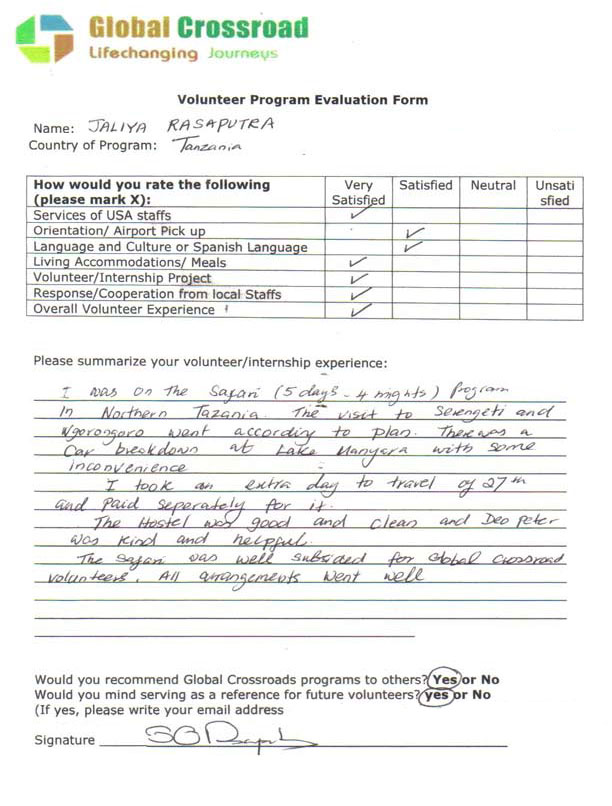 Global Crossroad
Lifechanging Journeys
Volunteer Program Evaluation Form
Name: JALIYA RASAPUTRA
Country of Program: Tanzania
How would you rate the following (please mark X): Very Satisfied Satisfied Neutral Unsatisfied
Services of USA staffs ✓
Orientation/ Airport Pick up ✓
Language and Culture or Spanish Language ✓
Living Accommodations/ Meals ✓
Volunteer/Internship Project ✓
Response/Cooperation from local Staffs ✓
Overall Volunteer Experience ✓
Please summarize your volunteer/internship experience:
I was on the Safari (5 days - 4 nights) Program
In Northern Tazania. The visit to Serengeti and
Ngorongoro went according to plan. There was a
Car breakdown at Lake Manyara with some
inconvenience
I took an extra day to travel of 27th
and Paid seperately for it.
The Hostel was good and clean and Deo Peter
was kind and helpful.
The Safari was well subsided for Global Crossroad
volunteers. All arrangements went well
Would you recommend Global Crossroads programs to others? Yes or No
Would you mind serving as a reference for future volunteers? yes or No
(If yes, please write your email address
Signature